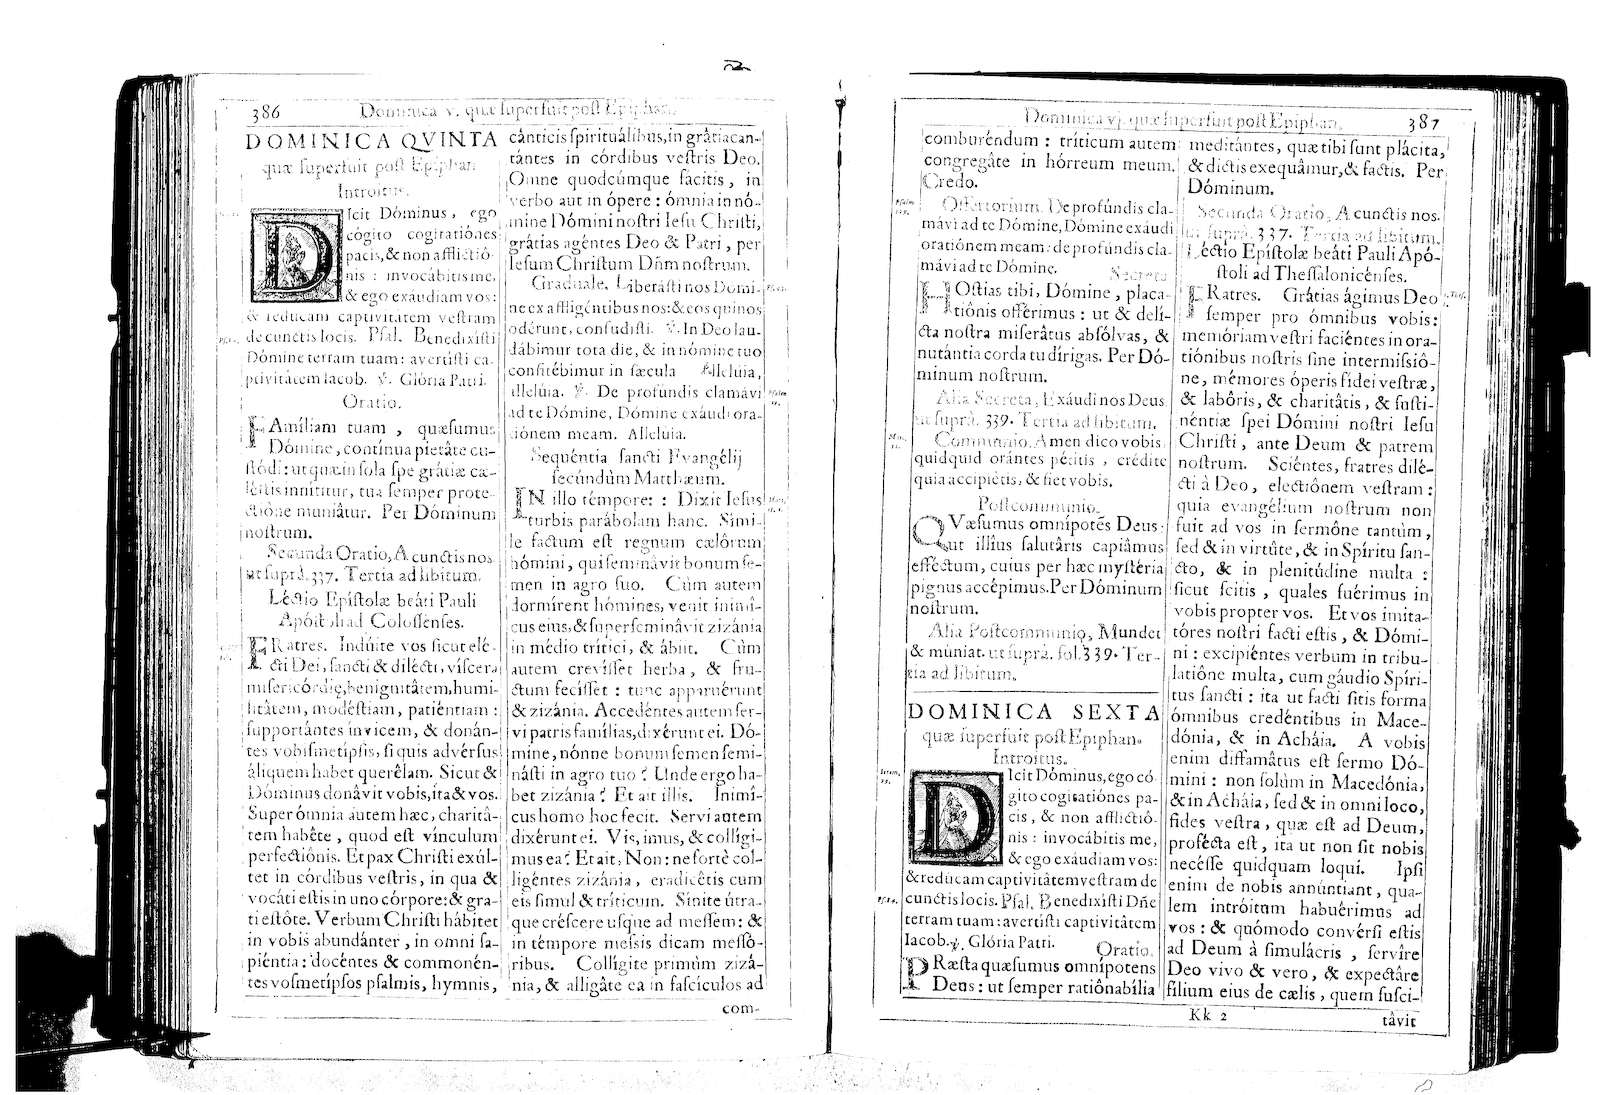 386 Dominica v. quæ ſuperfuit poſt Epiphan.
DOMINICA QVINTA
quæ ſuperfuit poſt Epiphan.
Introitus.
DIcit Dóminus, ego
cógito cogitatiónes
pacis, & non afflictió-
nis : invocábitis me,
& ego exáudiam vos:
& reducam captivitatem veſtram
de cunctis locis. Pſal. Benedixíſti
Dómine terram tuam: avertíſti ca-
ptivitátem Iacob. ℣. Glória Patri.
Oratio.
FAmíliam tuam, quæſumus
Dómine, contínua pietâte cu-
ſtódi: ut quæ in ſola ſpe grátiæ cæ-
léſtis innítitur, tua ſemper prote-
ctióne muniâtur. Per Dóminum
noſtrum.
Secunda Oratio, A cunctis nos
ut ſuprà. 337. Tertia ad libitum.
Léctio Epíſtolæ beáti Pauli
Apóſtoli ad Coloſſenſes.
FRatres. Indúite vos ſicut elé-
cti Dei, ſancti & dilécti, víſcera
miſericórdię, benignitâtem, humi-
litâtem, modéſtiam, patiéntiam :
ſupportántes invicem, & donán-
tes vobiſmetípſis, ſi quis advérſus
áliquem habet querêlam. Sicut &
Dóminus donâvit vobis, íta & vos.
Super ómnia autem hæc, charitâ-
tem habête, quod eſt vínculum
perfectiônis. Et pax Chriſti exúl-
tet in córdibus veſtris, in qua &
vocáti eſtis in uno córpore: & gra-
ti eſtôte. Verbum Chriſti hábitet
in vobis abundánter, in omni ſa-
piéntia: docéntes & commonén-
tes voſmetípſos pſalmis, hymnis,
cánticis ſpirituálibus, in grâtia can-
tántes in córdibus veſtris Deo.
Omne quodcúmque fácitis, in
verbo aut in ópere : ómnia in nó-
mine Dómini noſtri Ieſu Chriſti,
grátias agéntes Deo & Patri, per
Ieſum Chriſtum Dñm noſtrum.
Graduale. Liberáſti nos Dómi-
ne ex affligéntibus nos: & eos qui nos
odérunt, confudíſti. ℣. In Deo lau-
dábimur tota die, & in nómine tuo
confitébimur in ſæcula Alleluia,
alleluia. ℣. De profúndis clamávi
ad te Dómine, Dómine exáudi ora-
tiónem meam. Alleluia.
Sequéntia ſancti Evangélij
ſecúndùm Matthæum.
IN illo témpore: : Dixit Ieſus
turbis parábolam hanc. Sími-
le factum eſt regnum cælôrum
hómini, qui ſeminâvit bonum ſe-
men in agro ſuo. Cùm autem
dormírent hómines, venit inimí-
cus eius, & ſuperſeminâvit zizánia
in médio trítici, & ábiit. Cùm
autem creviſſet herba, & fru-
ctum feciſſet : tunc apparuérunt
& zizánia. Accedéntes autem ſer-
vi patris famílias, dixérunt ei. Dó-
mine, nónne bonum ſemen ſemi-
náſti in agro tuo ? Unde ergo ha-
bet zizánia ? Et ait illis. Inimí-
cus homo hoc fecit. Servi autem
dixérunt ei. Vis, imus, & collígi-
mus ea ? Et ait, Non : ne fortè col-
ligéntes zizánia, eradicêtis cum
eis ſimul & tríticum. Sínite útra-
que créſcere uſque ad meſſem: &
in témpore meſsis dicam meſſó-
ribus. Collígite primùm zizá-
nia, & alligâte ea in faſcículos ad
com-
Dominica vj. quæ ſuperfuit poſt Epiphan. 387
comburéndum : tríticum autem
congregâte in hórreum meum.
Credo.
Offertorium. De profúndis cla-
mávi ad te Dómine, Dómine exáudi
oratiónem meam: de profúndis cla-
mávi ad te Dómine. Secreta
HOſtias tibi, Dómine, placa-
tiónis offérimus : ut & delí-
cta noſtra miſerâtus abſólvas, &
nutántia corda tu dírigas. Per Dó-
minum noſtrum.
Alia Secreta, Exáudi nos Deus
ut ſuprà. 339. Tertia ad libitum.
Communio. Amen dico vobis
quidquid orántes pétitis, crédite
quia accipiétis, & fiet vobis.
Poſtcommunio.
QVæſumus omnípotés Deus:
ut illíus ſalutâris capiâmus
efféctum, cuius per hæc myſtéria
pignus accépimus. Per Dóminum
noſtrum.
Alia Poſtcommunio, Mundet
& múniat. ut ſuprà. fol. 339. Ter-
tia ad libitum.
DOMINICA SEXTA
quæ ſuperfuit poſt Epiphan.
Introitus.
DIcit Dóminus, ego có-
gito cogitatiónes pa-
cis, & non afflictió-
nis : invocábitis me,
& ego exáudiam vos:
& redúcam captivitâtem veſtram de
cunctis locis. Pſal. Benedixíſti Dñe
terram tuam : avertíſti captivitâtem
Iacob. ℣. Glória Patri. Oratio.
PRæſta quæſumus omnípotens
Deus : ut ſemper rationabília
meditántes, quæ tibi ſunt plácita,
& dictis exequâmur, & factis. Per
Dóminum.
Secunda Oratio, A cunctis nos.
ut ſuprà. 337. Tertia ad libitum.
Léctio Epíſtolæ beáti Pauli Apó-
ſtoli ad Theſſalonicénſes.
FRatres. Grátias ágimus Deo
ſemper pro ómnibus vobis:
memóriam veſtri faciéntes in ora-
tiónibus noſtris ſine intermiſsió-
ne, mémores óperis fídei veſtræ,
& labôris, & charitâtis, & ſuſti-
néntiæ ſpei Dómini noſtri Ieſu
Chriſti, ante Deum & patrem
noſtrum. Sciéntes, fratres dilé-
cti à Deo, electiônem veſtram :
quia evangélium noſtrum non
fuit ad vos in ſermône tantùm,
ſed & in virtûte, & in Spíritu ſan-
cto, & in plenitúdine multa :
ſicut ſcitis, quales fuérimus in
vobis propter vos. Et vos imita-
tóres noſtri facti eſtis, & Dómi-
ni : excipiéntes verbum in tribu-
latiône multa, cum gáudio Spíri-
tus ſancti : ita ut facti ſitis forma
ómnibus credéntibus in Mace-
dónia, & in Acháia. A vobis
enim diffamâtus eſt ſermo Dó-
mini : non ſolùm in Macedónia,
& in Acháia, ſed & in omni loco,
fides veſtra, quæ eſt ad Deum,
profécta eſt, ita ut non ſit nobis
necéſſe quidquam loqui. Ipſi
enim de nobis annúntiant, qua-
lem intróitum habuérimus ad
vos : & quómodo convérſi eſtis
ad Deum à ſimulácris, ſervíre
Deo vivo & vero, & expectâre
filium eius de cælis, quem ſuſci-
Kk 2
tâvit